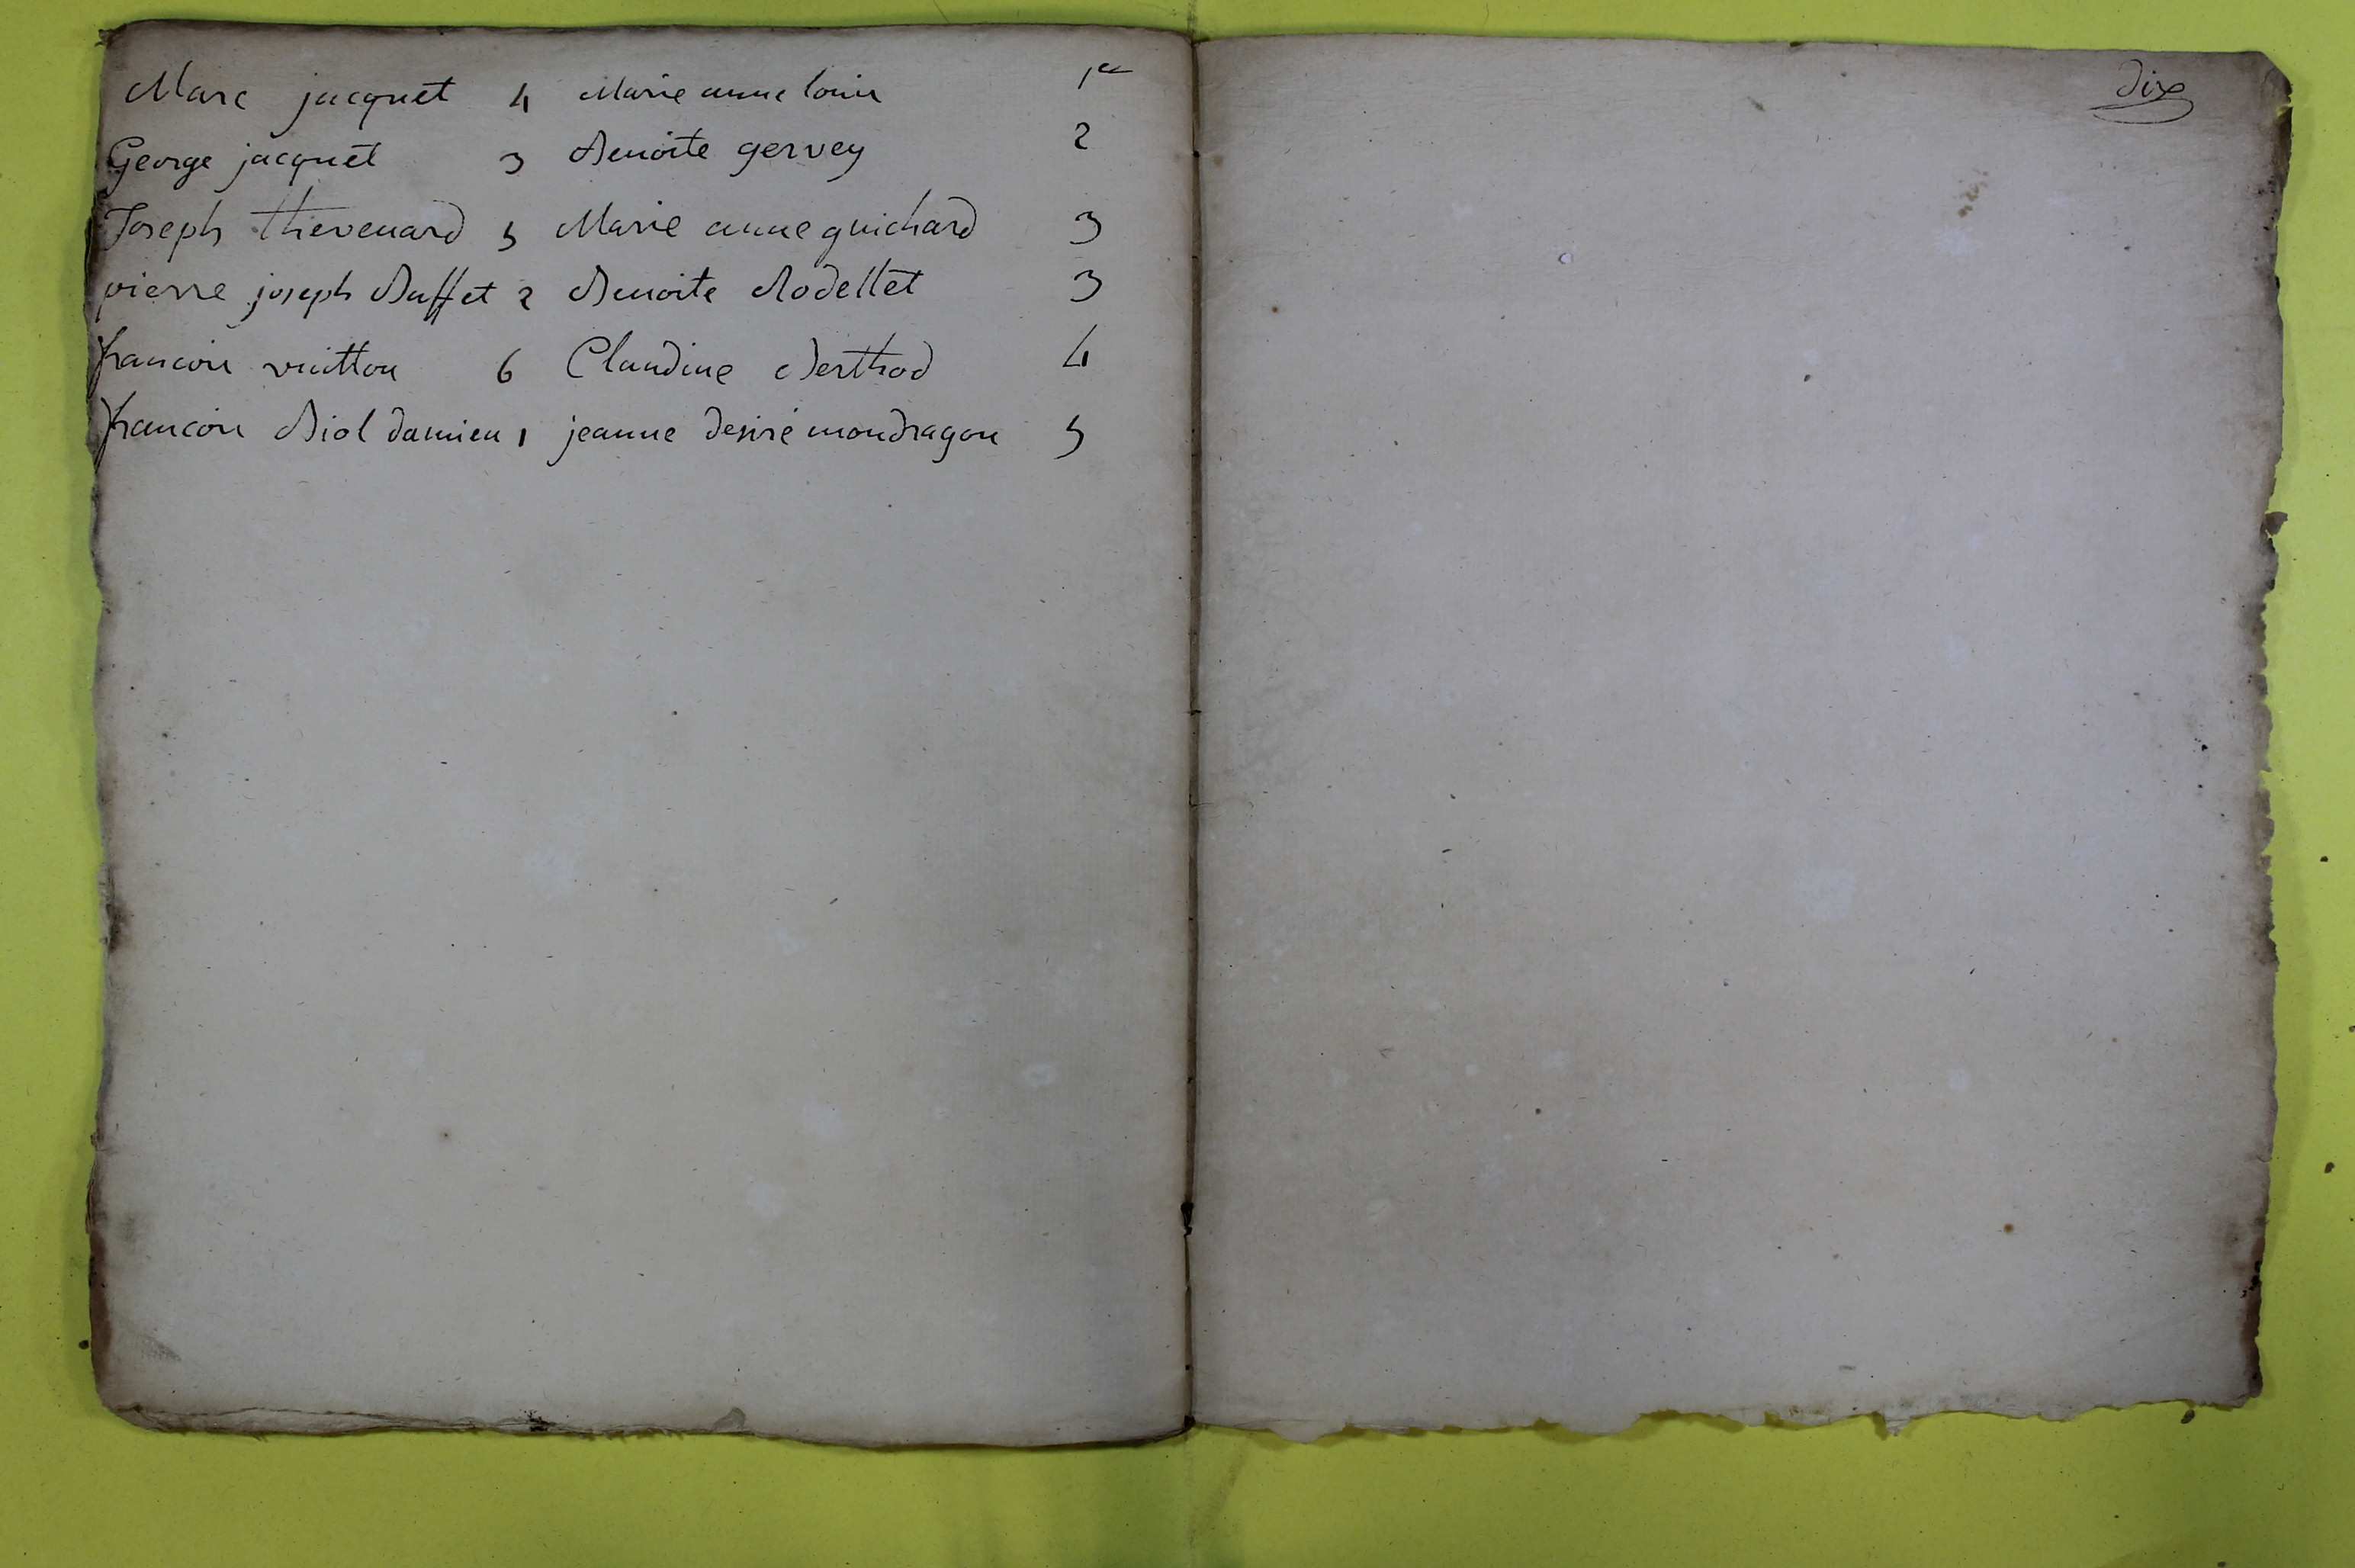 Marc jacquet 4 Marie anne louis 1er
George jacquet 3 Benoite gervey 2
Joseph thevenard 5 Marie anne guichard 3
pierre joseph Buffet 2 Benoite Rodellet 3
francois vuitton 6 Claudine Berthod 4
francois Biol damien 1 jeanne desiré mondragon 5
dix